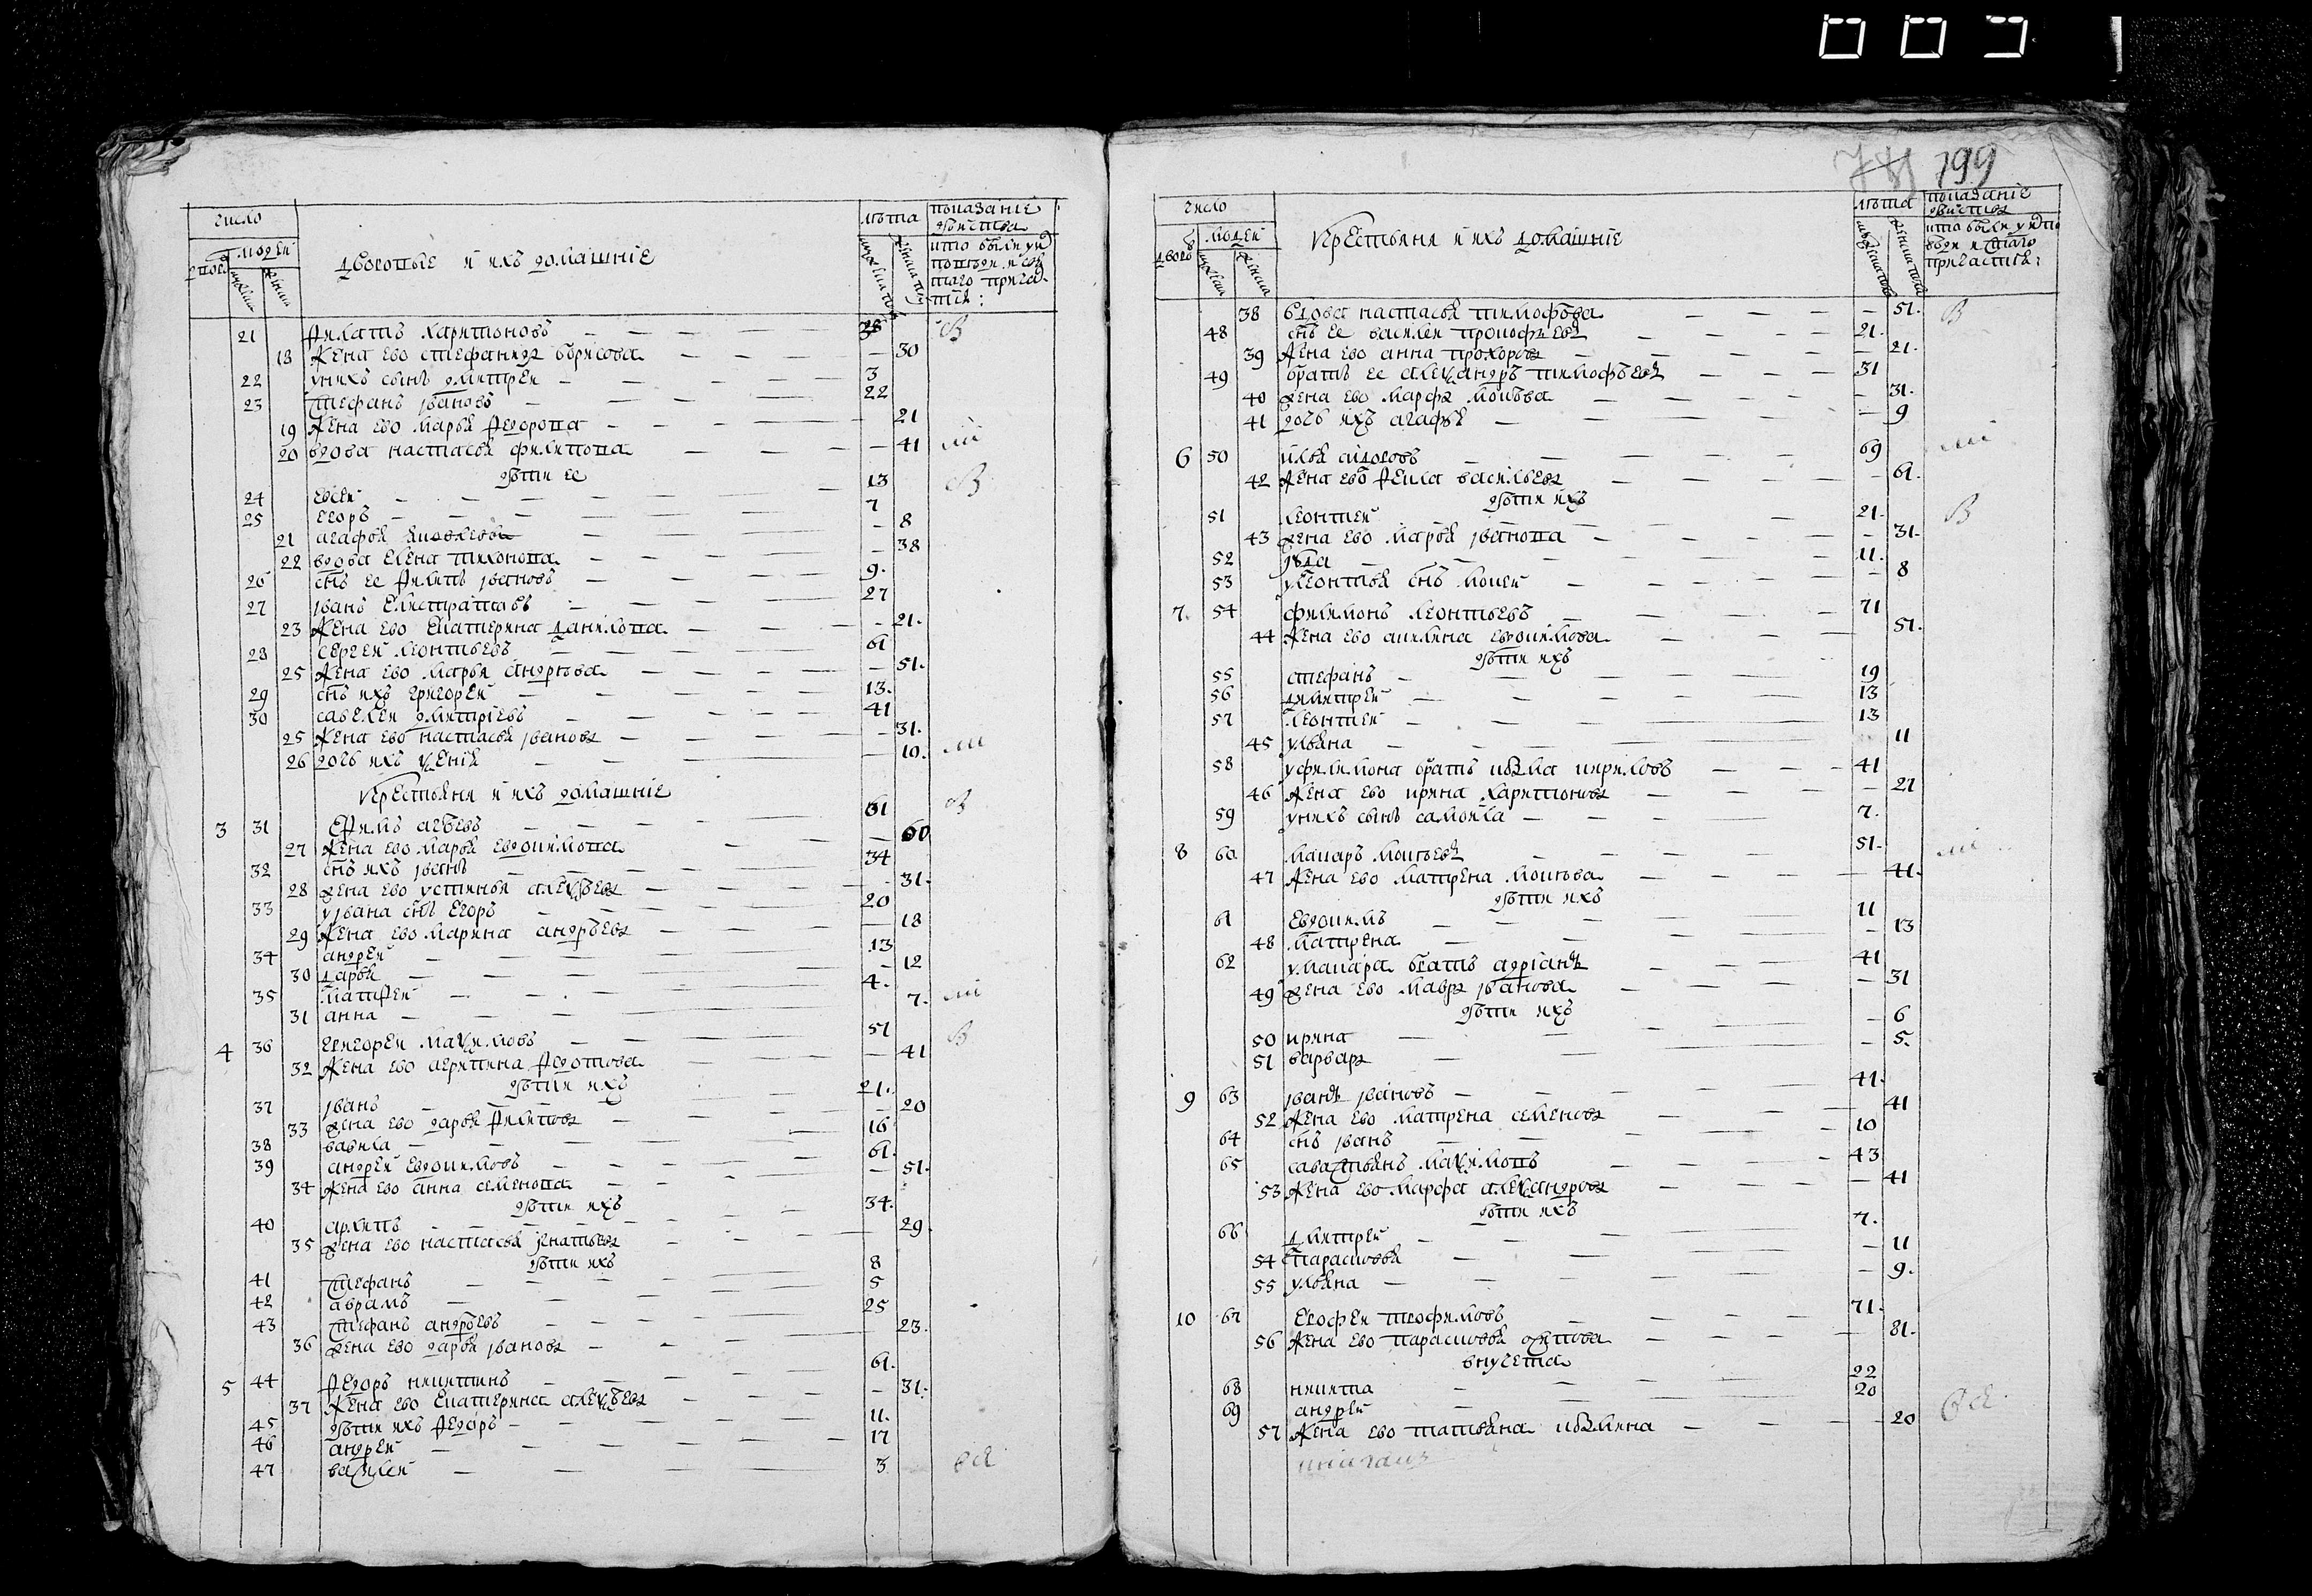 число
людей
дворовые и ихъ домашние
лѣта
показание
действа
кто были у
21 Филатъ Харитоновъ 28
18 Жена ево Стефанида Борисова 30
22 у нихъ сынъ Дмитрей 3
23 Стефанъ Івановъ 22
19 Жена ево Марья Федорова 21
20 вдова Настасья Филипова 41
дѣти ее
24 Евсей 13
25 Егоръ 7
21 Агафья Яковлева 8
22 вдова Елена Тихонова 38
26 снъ ее Филипъ Івановъ 9
27 Іванъ Елистратовъ 27
23 Жена ево Екатерина Данилова 21
28 Сергей Леонтьевъ 61
25 Жена ево Марья Андрѣева 51
29 снъ ихъ Григорей 13
30 Савелей Дмитріевъ 41
25 Жена ево Настасья Іванова 31
26 дочь ихъ Ксения 10
Крестьяня и ихъ домашние
3 31 Ефимъ 61
27 Жена ево Марья Евдокимова 60
32 снъ ихъ Іванъ 34
28 жена ево Устинья Алексѣева 31
33 у Івана снъ Егоръ 20
29 Жена ево Марина Андрѣева 18
34 Андрей 13
30 Дарья 12
35 Матфей 4
31 Анна 7
4 36 Григорей Максимовъ 51
32 Жена ево Агрипина Федотова 41
дѣти ихъ
37 Іванъ 21
33 жена ево Дарья Филипова 20
38 Вавила 16
39 Андрей Евдокимовъ 61
34 Жена ево Анна Семенова 51
дѣти ихъ
40 Архипъ 34
35 жена ево Настасья Ігнатьева 29
дѣти ихъ
41 Стефанъ 8
42 Аврамъ 5
43 Стефанъ Андрѣевъ 25
36 жена ево Дарья Іванова 23
5 44 Федоръ Никитинъ 61
37 Жена ево Екатерина Алексѣева 31
45 дѣти ихъ Федоръ 11
46 Андрей 17
47 Василей 3
799
число
двовъ людей
Крестьяня и ихъ домашние
лѣта
показание
действа
38 вдова Настасья Тимофѣева 51
48 снъ ее Василей Прокофьевъ 21
39 Жена ево Анна Прохорова 21
49 братъ ее Александръ Тимофѣевъ 31
40 жена ево Марфа Мокѣева 31
41 дочь ихъ Агафья 9
6 50 Илья Сидоровъ 69
42 Жена ево Фекла Васильева 61
дѣти ихъ
51 Леонтей 21
43 жена ево Марья Іванова 31
52 11
53 у Леонтья снъ Мокей 8
7 54 Филимонъ Леонтьевъ 71
44 Жена ево Акилина Евдокимова 51
дѣти ихъ
55 Стефанъ 19
56 Димитрей 13
57 Леонтей 13
45 Ульяна 11
58 у Филимона братъ Козма Кириловъ 41
46 Жена ево Ирина Харитонова 27
59 у нихъ сынъ Самойла 7
8 60 Макаръ Мокѣевъ 51
47 Жена ево Матрена Мокѣева 41
дѣти ихъ
61 Евдокимъ 11
48 Матрена 13
62 у Макара братъ Адріанъ 41
49 жена ево Мавра Іванова 31
дѣти ихъ
50 Ирина 6
51 Варвара 5
9 63 Іванъ Івановъ 41
52 Жена ево Матрена Семенова 41
64 снъ Іванъ 10
65 Савастьянъ Максимовъ 43
53 Жена ево Марфа Александрова 41
дѣти ихъ
66 Дмитрей 7
54 Парасковья 11
55 Ульяна 9
10 67 Ерофей Трофимовъ 71
56 Жена ево Парасковья Осипова 81
внучета
68 Никита 22
69 Андрей 20
57 Жена ево Татьяна Козмина 20